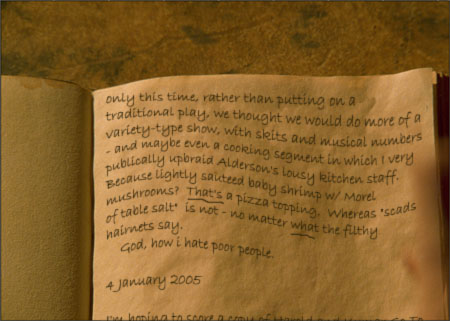 only this time, rather than putting on a
traditional play, we thought we would do more of a
variety-type show, with skits and musical numbers
- and maybe even a cooking segment in which I very
publically upbraid Alderson's lousy kitchen staff.
Because lightly sauteed baby shrimp w/ Morel
mushrooms? That's a pizza topping. Whereas "scads
of table salt" is not - no matter what the filthy
hairnets say.
God, how i hate poor people.
4 January 2005
I'm hoping to score a copy of